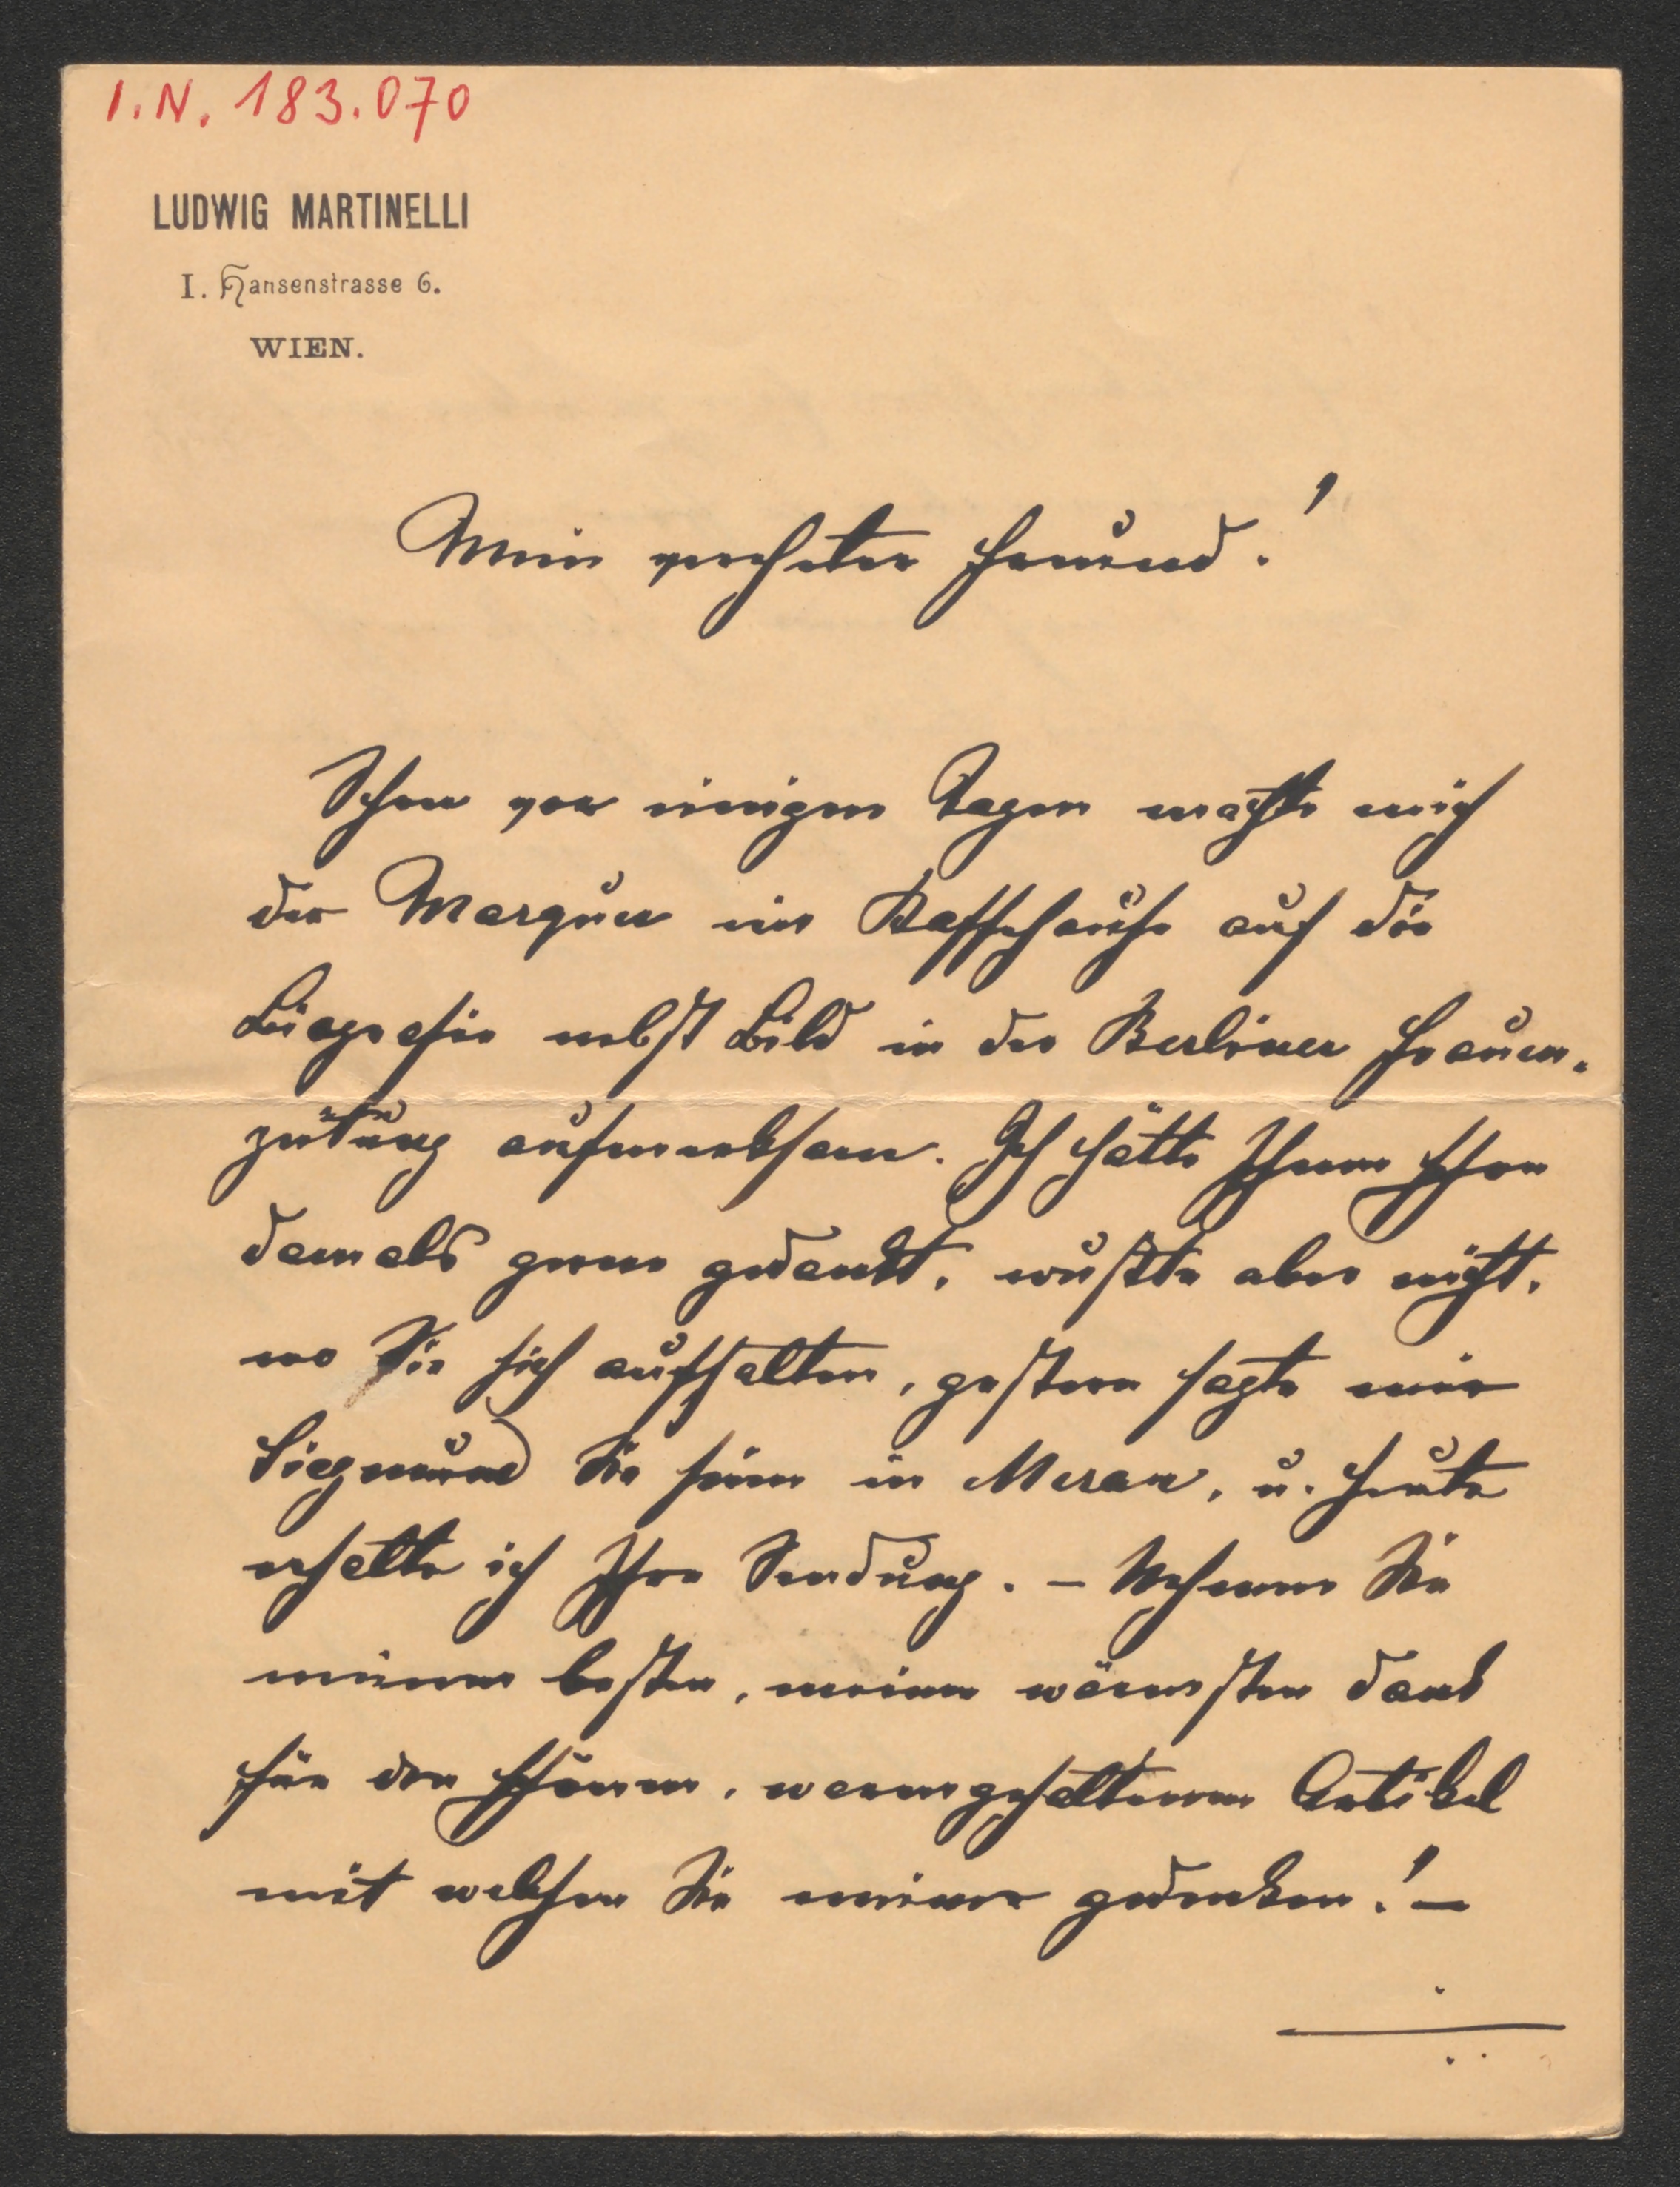 I.N. 183.070
LUDWIG MARTINELLI
I. Hansenstrasse 6.
WIEN.
Mein verehrter Freund!
Schon vor einigen Tagen machte mich
der Marquir im Kaffehause auf die
Biografie nebst Bild in der Berliner Frauen-
zeitung aufmerksam. Ich hätte Ihnen schon
damals gerne gedankt, wußte aber nicht,
wo Sie sich aufhalten, gestern sagte mir
Siegmund Sie seien in Meran, u. heute
erhalte ich Ihre Sendung. – Nehmen Sie
meinen besten, meinen wärmsten Dank
für den schönen, warmgehaltenen Artikel
mit welchen Sie meiner gedenken! –